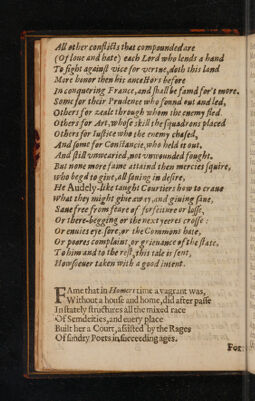 All other conflicts that compounded are
(Of loue and hate) each Lord who lends a hand
To fight against vice for vertue, doth this land
More honor then his ancestors before
In conquering France, and shall be famd for't more.
Some for their Prudence who found out and led,
Others for zeale through whom the enemy fled.
Others for Art, whose skill the squadrons placed
Others for Iustice who the enemy chased,
And some for Constancie, who held it out.
And still vnwearied, not vnwounded fought.
But none more fame attaind then mercies squire,
Who begd to giue, all sauing in desire,
He Audely-like taught Courtiers how to craue
What they might giue away, and giuing saue,
Saue free from feare of forfeiture or losse,
Or there-begging or the next yeeres crosse:
Or enuies eye-sore, or the Commons hate,
Or poores complaint, or grieuance of the state.
To him and to the rest, this tale is sent,
Howsoeuer taken with a good intent.
FAme that in Homers time a vagrant was,
Without a house and home, did after passe
In stately structures all the mixed race
Of Semdeities, and euery place
Built her a Court, assisted by the Rages
Of sundry Poets in succeeding ages.
For